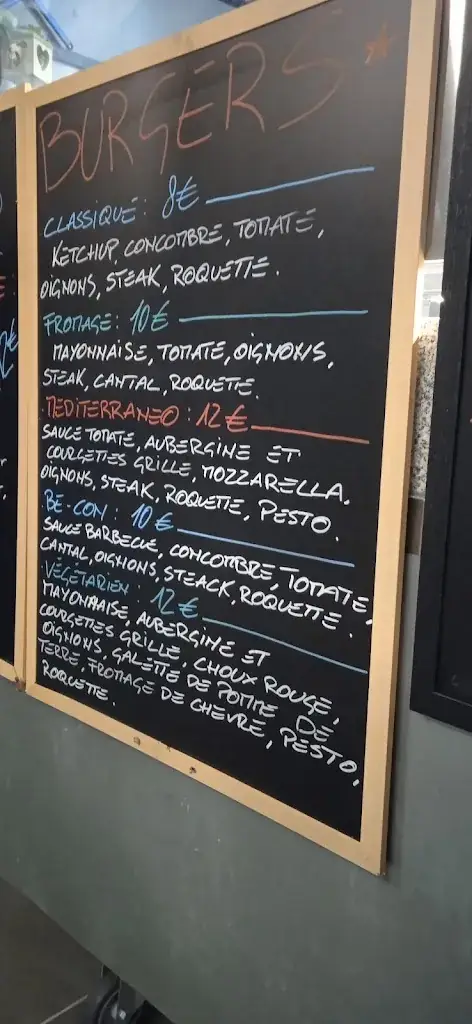 BURGERS*
CLASSIQUE: 8€
KETCHUP, CONCOMBRE, TOMATE,
OIGNONS, STEAK, ROQUETTE.
FROMAGE: 10€
MAYONNAISE, TOMATE, OIGNONS,
STEAK, CANTAL, ROQUETTE.
MEDITERRANEO: 12€
SAUCE TOMATE, AUBERGINE ET
COURGETTES GRILLE, MOZZARELLA.
OIGNONS, STEAK, ROQUETTE, PESTO.
BE-CON: 10€
SAUCE BARBECUE, CONCOMBRE, TOMATE,
CANTAL, OIGNONS, STEACK, ROQUETTE.
VÉGÉTARIEN: 12€
MAYONNAISE, AUBERGINE ET
COURGETTES GRILLE, CHOUX ROUGE,
OIGNONS, GALETTE DE POMME DE
TERRE, FROMAGE DE CHEVRE, PESTO,
ROQUETTE.